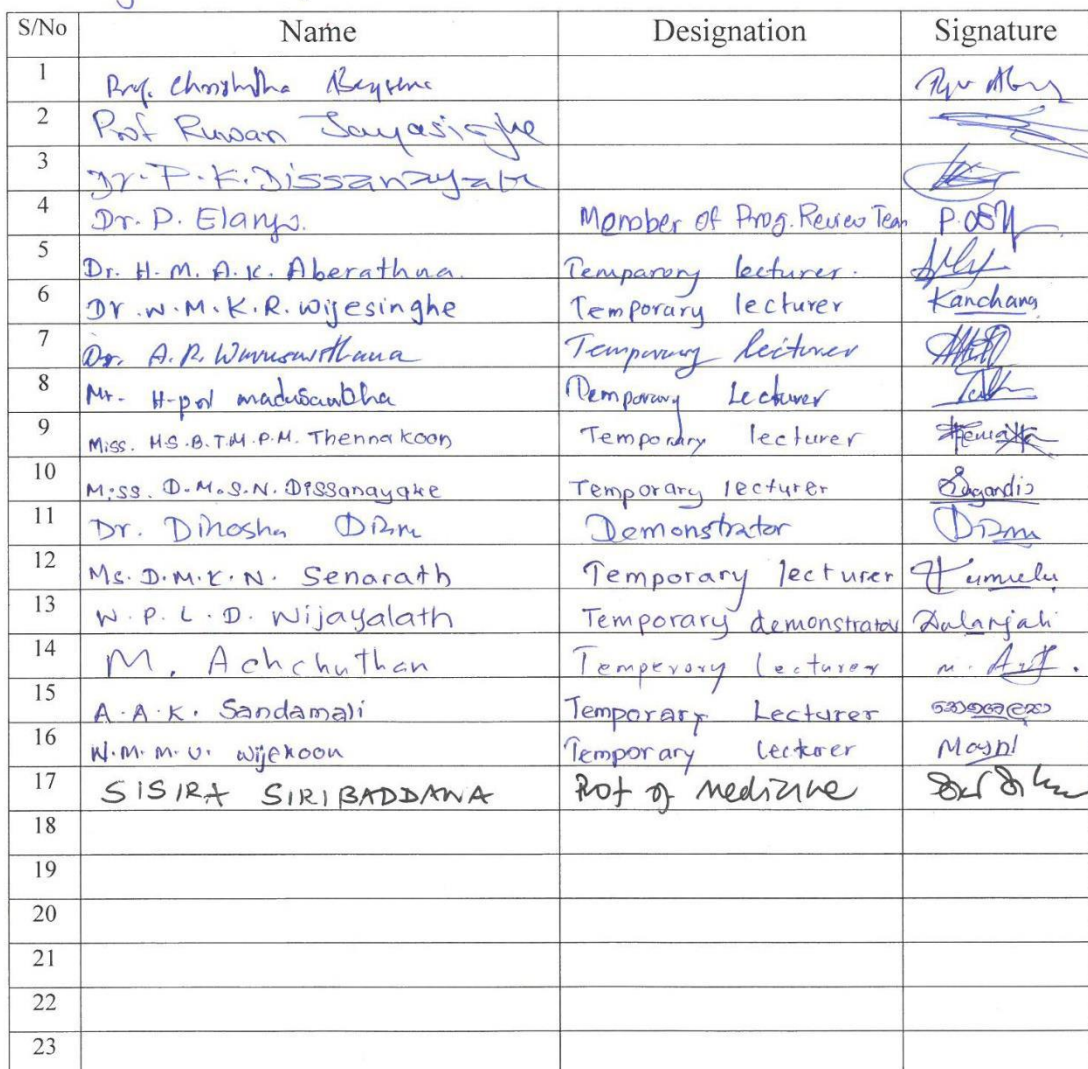 S/No Name Designation Signature
1 Prof.
2 Prof Ruwan Jayasinghe
3 Dr. P. K. Dissanayake
4 Dr. P. Member of Prog. Review Team
5 Dr. H. M. A. K. Aberathna. Temparory lecturer.
6 Dr. W. M. K. R. Wijesinghe Temporary lecturer Kanchana
7 Dr. A. R. Temporary lecturer
8 Mr. Temporary Lecturer
9 Miss. H.S.B.T.M.P.M. Thennakoon Temporary lecturer
10 Miss. D.M.S.N. Dissanayake Temporary lecturer
11 Dr. Dinosha Demonstrator
12 Ms. D.M.K.N. Senarath Temporary lecturer
13 W. P. L. D. Wijayalath Temporary demonstrator Dulanjali
14 M. Achchuthan Temperory lecturer
15 A. A. K. Sandamali Temporary Lecturer
16 W. M. M. U. Wijekoon Temporary lecturer
17 SISIRA SIRIBADDANA Prof of medicine
18
19
20
21
22
23